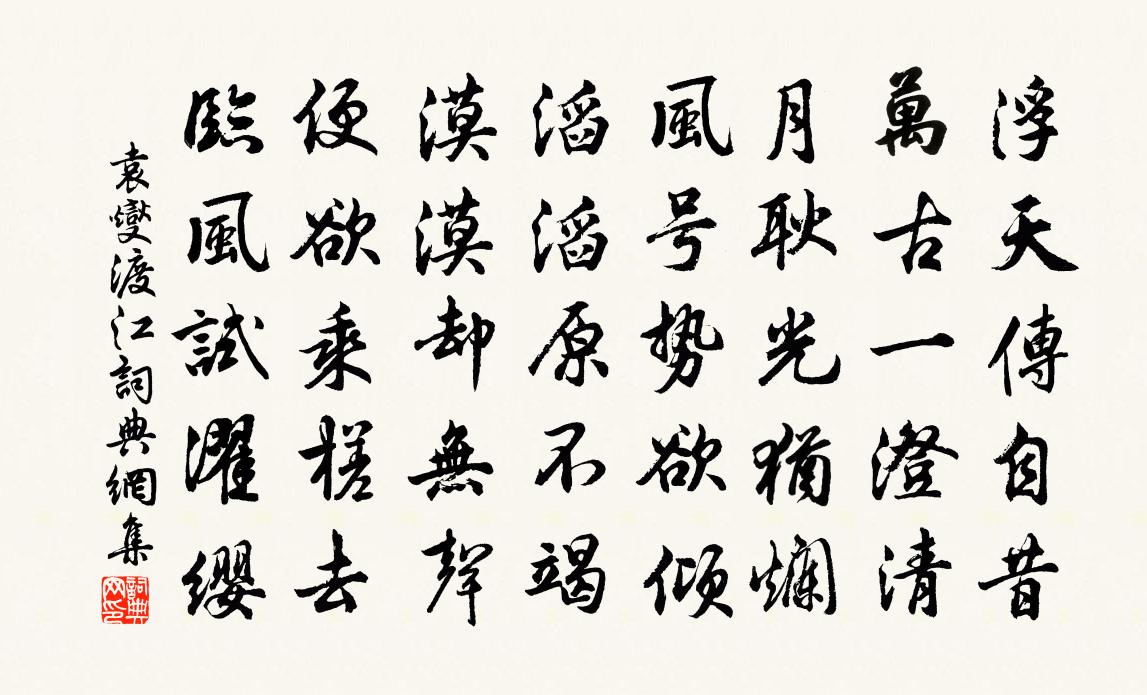 浮天傳自昔
萬古一澄清
月耿光猶爛
風号勢欲傾
滔滔原不竭
漠漠却無聲
便欲乘槎去
臨風試濯纓
袁燮渡江詞典網集
詞典网印